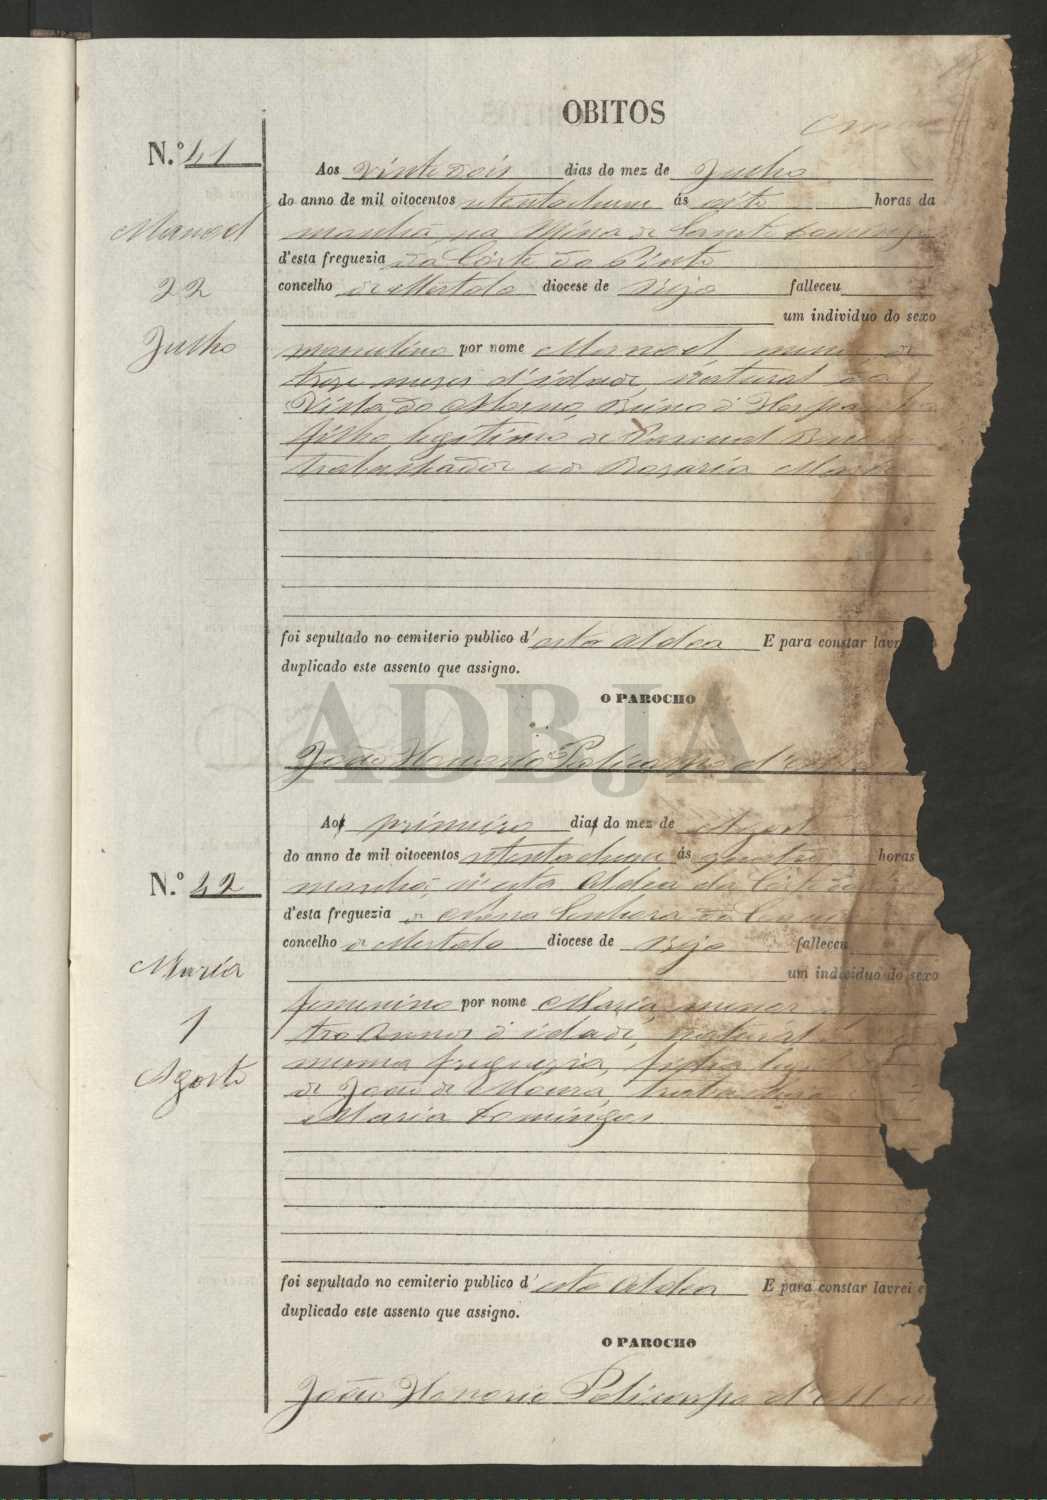 OBITOS
N.º 41
Aos vinte dois dias do mez de Julho
do anno de mil oitocentos setenta e hum ás oito horas da
Manoel
manhã, na Mina de Sam Domingos
d'esta freguezia da Côrte do Pinto
22
concelho de Mertola diocese de Beja falleceu
um individuo do sexo
Julho
masculino por nome Manoel menor de
treze mezes d'idade, natural
filho legitimo de Pascoal
trabalhador e de Rozaria
foi sepultado no cemiterio publico d'esta aldea E para constar lavr
duplicado este assento que assigno.
O PAROCHO
ADBJA
João Honorio Policarpo d'
Ao primeiro dia do mez de Agosto
do anno de mil oitocentos setenta e hum ás quatro horas
N.º 42
manhã, n'esta Aldea da Côrte
d'esta freguezia de Nossa Senhora da
concelho de Mertola diocese de Beja falleceu
um individuo do sexo
Maria
femenino por nome Maria, menor
1
tro annos d'idade, natural
Agosto
mesma freguezia, filha leg
de João de Moura, traba
Maria Domingos
foi sepultado no cemiterio publico d'esta aldea E para constar lavrei e
duplicado este assento que assigno.
O PAROCHO
João Honorio Policarpo d'